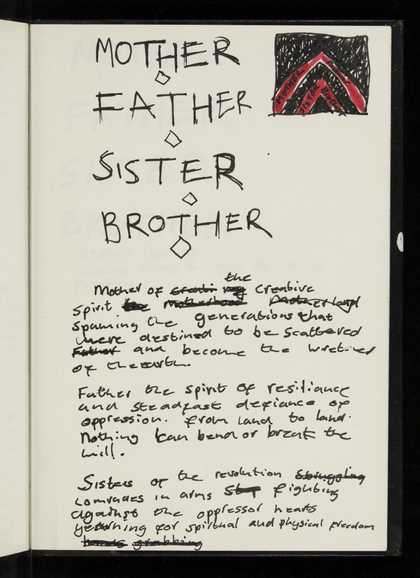 MOTHER
FATHER
SISTER
BROTHER
MOTHER
SISTER
Mother of creati the creative
spirit the motherhood Motherland
spanning the generations that
were destined to be scattered
Father and become the wretched
of the earth.
Father the spirit of resiliance
and steadfast defiance of
oppression. from land to land.
Nothing can bend or break the
will.
Sisters of the revolution struggling
comrades in arms fighting
against the oppressor hearts
yearning for spiritual and physical freedom
hands grabbing